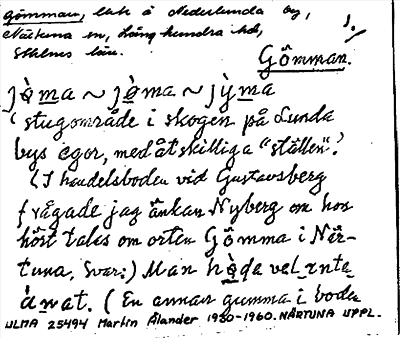 Gömman, lnk å Nederlunda äg,
Närtuna sn, Långhundra hd,
Sthlms län.
1.
Gömman.
jø̀ma ~ jø̀ma ~ jỳma
(stugområde i skogen på Lunda
bys egor, med åtskilliga "ställen".)
(I handelsboden vid Gustavsberg
frågade jag änkan Nyberg om hon
hört talas om orten Gömma i När-
tuna, Svar:) Man høḍa vel ınte
ànat. (En annan gumma i boden
ULMA 25494 Martin Ålander 1930-1960. NÄRTUNA UPPL.